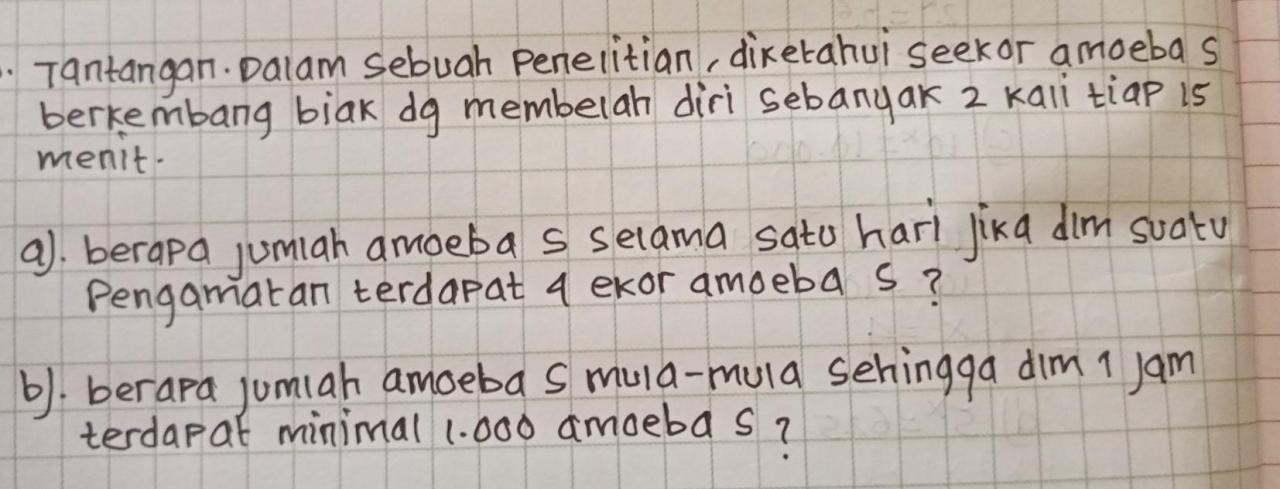 Tantangan. Dalam sebuah penelitian, diketahui seekor amoeba S
berkembang biak dg membelah diri sebanyak 2 kali tiap 15
menit.
a). berapa jumlah amoeba S selama satu hari jika dlm suatu
Pengamatan terdapat 4 ekor amoeba S ?
b). berapa jumlah amoeba S mula-mula sehingga dlm 1 jam
terdapat minimal 1.000 amoeba S ?